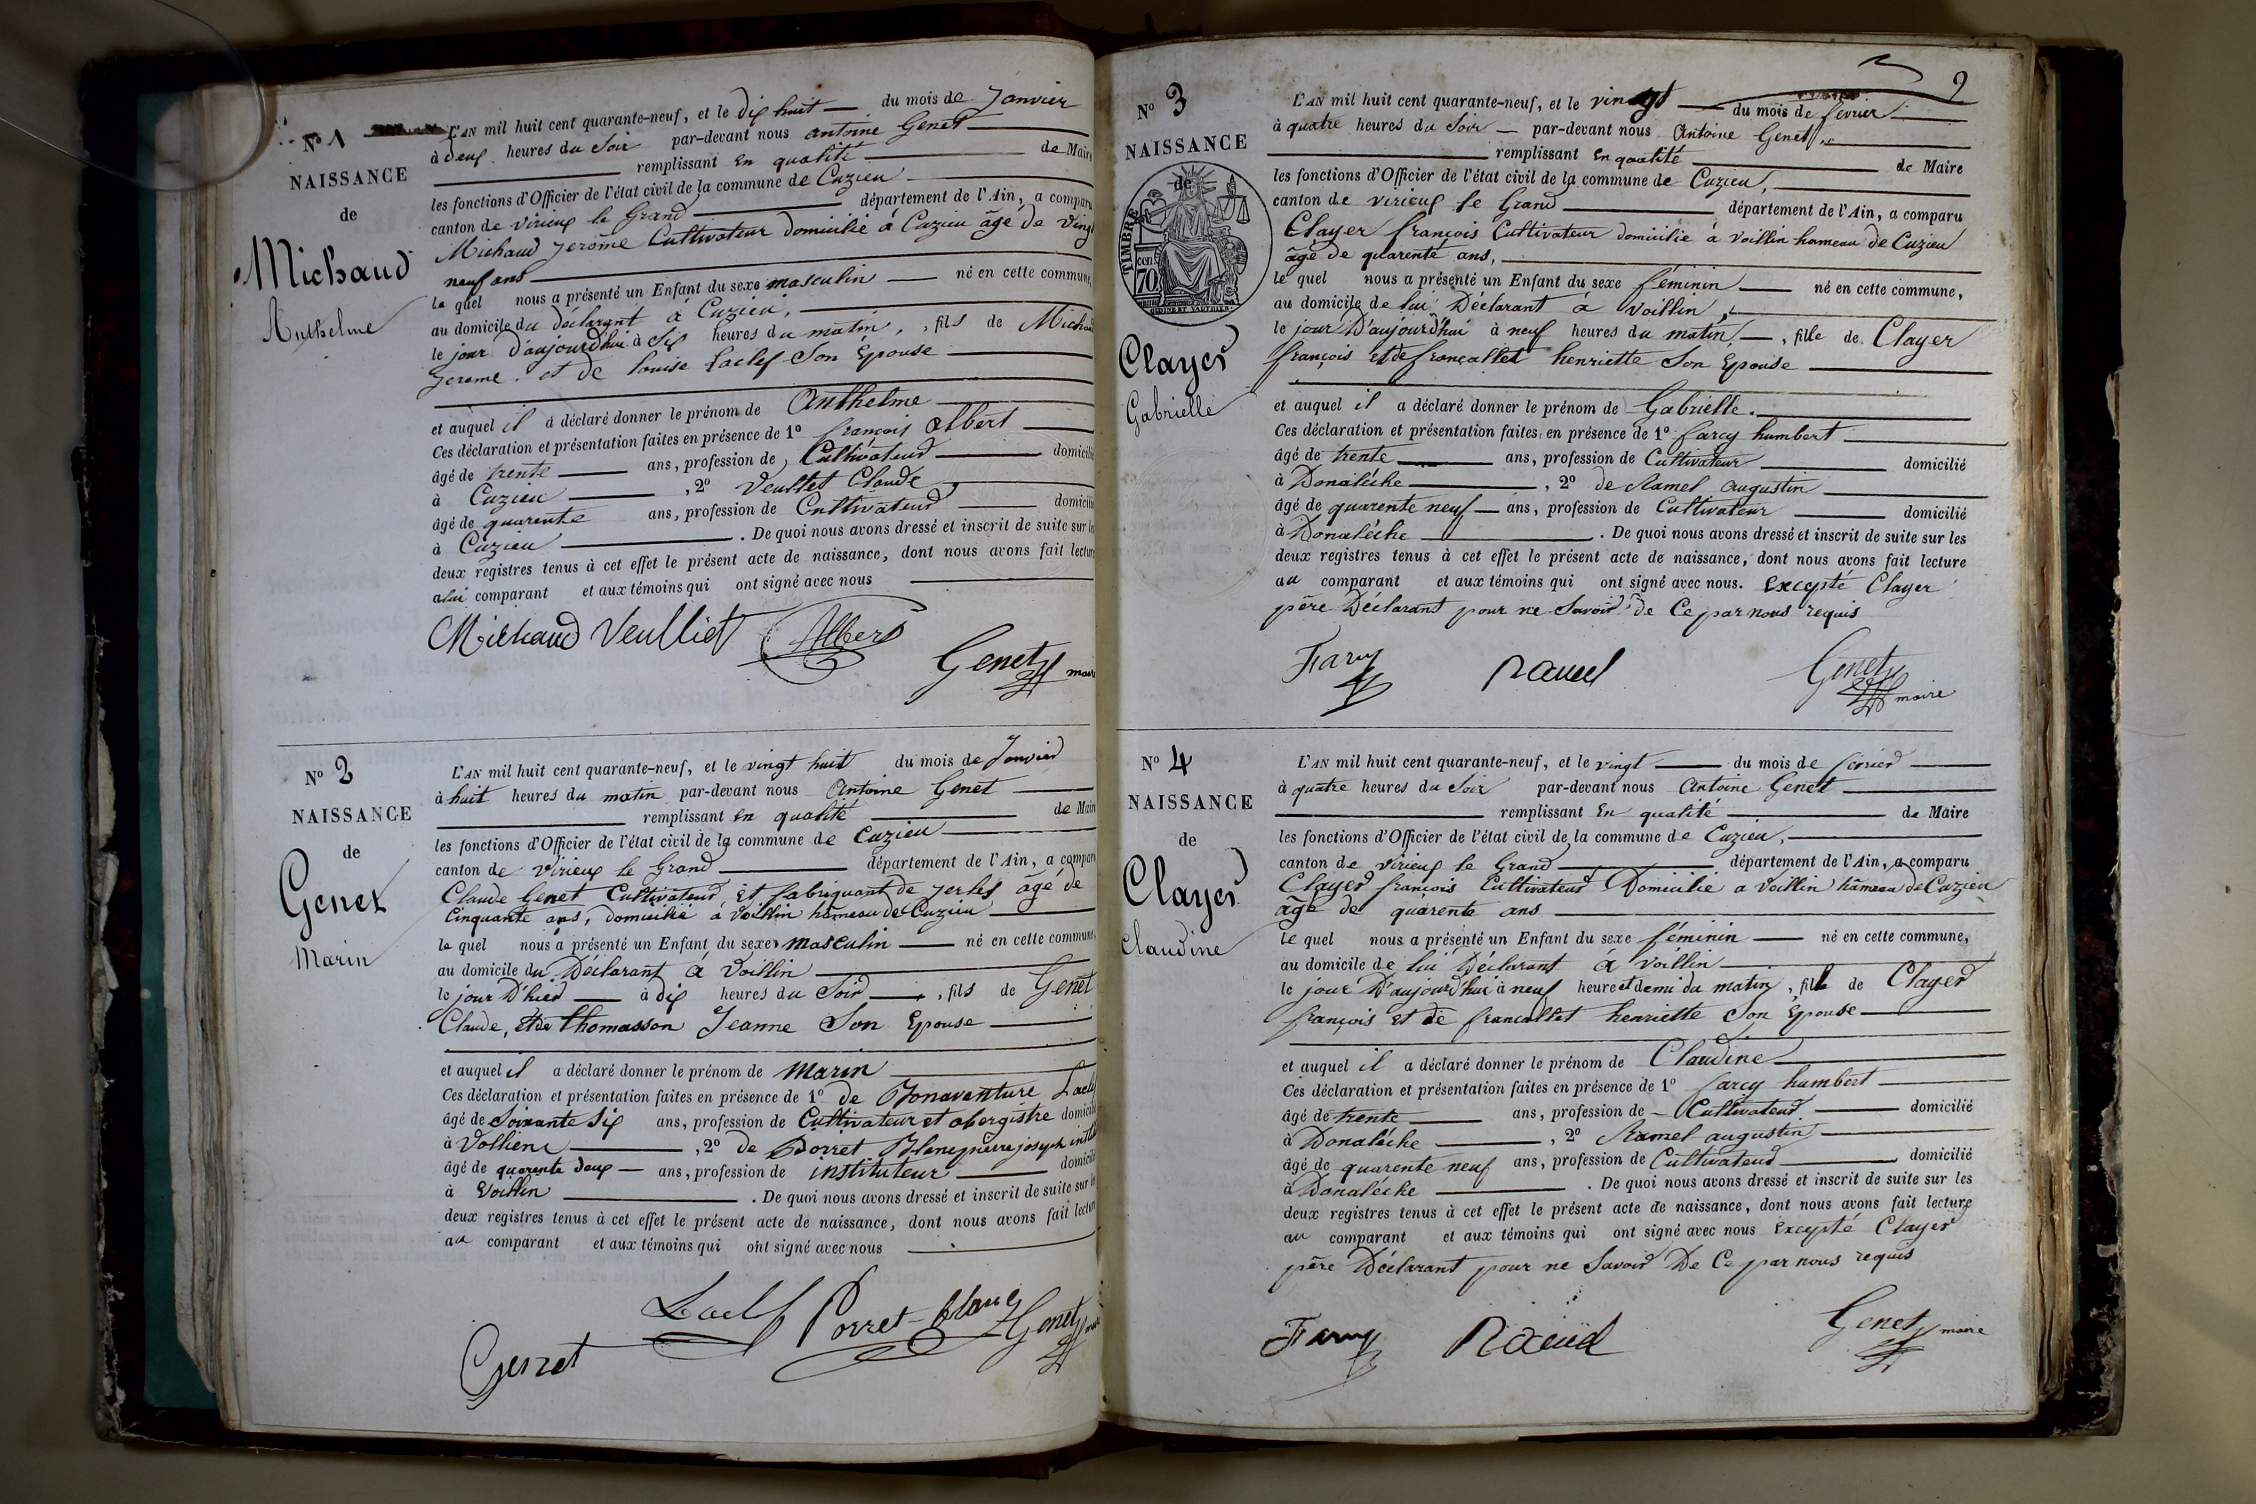 N° 1
NAISSANCE
de
Michaud
Anthelme
L'AN mil huit cent quarante-neuf, et le dix huit du mois de Janvier
à deux heures du soir par-devant nous antoine Genet
remplissant en qualité de Maire
les fonctions d'Officier de l'état civil de la commune de Cuzieu
canton de virieux le Grand département de l'Ain, a comparu
Michaud jerome Cultivateur domicilié à Cuzieu âgé de vingt
neuf ans
le quel nous a présenté un Enfant du sexe masculin né en cette commune,
au domicile du déclarant à Cuzieu,
le jour d'aujourdhui à six heures du matin, fils de Michaud
jerome et de louise Laclef Son Epouse
et auquel il a déclaré donner le prénom de Anthelme
Ces déclaration et présentation faites en présence de 1° françois albert
âgé de trente ans, profession de Cultivateur domicilié
à Cuzieu , 2° Veulliet Claude
âgé de quarente ans, profession de Cultivateur domicilié
à Cuzieu . De quoi nous avons dressé et inscrit de suite sur les
deux registres tenus à cet effet le présent acte de naissance, dont nous avons fait lecture
a lui comparant et aux témoins qui ont signé avec nous
Michaud Veulliet Albert
Genet maire
N° 2
NAISSANCE
de
Genet
Marin
L'AN mil huit cent quarante-neuf, et le vingt huit du mois de Janvier
à huit heures du matin par-devant nous Antoine Genet
remplissant en qualité de Maire
les fonctions d'Officier de l'état civil de la commune de Cuzieu
canton de virieux le Grand département de l'Ain, a comparu
Claude Genet Cultivateur Et fabriquant de jerles âgé de
Cinquante ans, domicilié à Voillin hâmeau de Cuzieu
le quel nous a présenté un Enfant du sexe masculin né en cette commune,
au domicile du Déclarant à Voillin
le jour D'hier à dix heures du Soir , fils de Genet
Claude, et de thomasson Jeanne Son Epouse
et auquel il a déclaré donner le prénom de Marin
Ces déclaration et présentation faites en présence de 1° de Bonaventure Laclef
âgé de Soixante Six ans, profession de Cultivateur et obergistre domicilié
à Vollien , 2° de Porret Blanc pierre joseph
âgé de quarente deux ans, profession de instituteur domicilié
à Voillin . De quoi nous avons dressé et inscrit de suite sur les
deux registres tenus à cet effet le présent acte de naissance, dont nous avons fait lecture
au comparant et aux témoins qui ont signé avec nous
Laclef Porret-Blanc Genet maire
Genet
9
N° 3
NAISSANCE
de
TIMBRE
70
Clayer
Gabrielle
L'AN mil huit cent quarante-neuf, et le vingt du mois de fevrier
à quatre heures du Soir par-devant nous Antoine Genet,
remplissant en qualité de Maire
les fonctions d'Officier de l'état civil de la commune de Cuzieu,
canton de virieux le Grand département de l'Ain, a comparu
Clayer françois Cultivateur domicilié à Voillin hameau de Cuzieu
âgé de quarente ans,
le quel nous a présenté un Enfant du sexe féminin né en cette commune,
au domicile de lui Déclarant à Voillin,
le jour D'aujourd'hui à neuf heures du matin, fille de Clayer
françois et de françallet henriette Son Epouse
et auquel il a déclaré donner le prénom de Gabrielle.
Ces déclaration et présentation faites en présence de 1° farcy humbert
âgé de trente ans, profession de Cultivateur domicilié
à Donaléche , 2° de Ramel augustin
âgé de quarente neuf ans, profession de Cultivateur domicilié
à Donaléche . De quoi nous avons dressé et inscrit de suite sur les
deux registres tenus à cet effet le présent acte de naissance, dont nous avons fait lecture
au comparant et aux témoins qui ont signé avec nous. Excepté Clayer
père Déclarant pour ne Savoir de Ce par nous requis
Farcy Ramel Genet maire
N° 4
NAISSANCE
de
Clayer
Claudine
L'AN mil huit cent quarante-neuf, et le vingt du mois de fevrier
à quatre heures du Soir par-devant nous Antoine Genet
remplissant En qualité de Maire
les fonctions d'Officier de l'état civil de la commune de Cuzieu,
canton de virieux le Grand département de l'Ain, a comparu
Clayer françois Cultivateur Domicilié a Voillin hâmeau de Cuzieu
âgé de quarente ans
le quel nous a présenté un Enfant du sexe féminin né en cette commune,
au domicile de lui Déclarant à Voillin
le jour D'aujourd'hui à neuf heure et demi du matin, fille de Clayer
françois et de françallet henriette Son Epouse
et auquel il a déclaré donner le prénom de Claudine
Ces déclaration et présentation faites en présence de 1° farcy humbert
âgé de trente ans, profession de Cultivateur domicilié
à Donaléche , 2° Ramel augustin
âgé de quarente neuf ans, profession de Cultivateur domicilié
à Donaléche . De quoi nous avons dressé et inscrit de suite sur les
deux registres tenus à cet effet le présent acte de naissance, dont nous avons fait lecture
au comparant et aux témoins qui ont signé avec nous Excepté Clayer
père Déclarant pour ne Savoir De Ce par nous requis
Farcy Ramel Genet maire